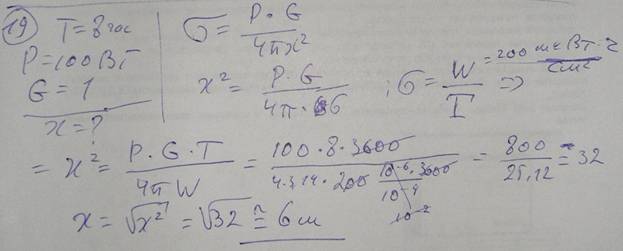 19 T = 8 час
P = 100 Вт
G = 1
x = ?
σ = P · G / 4πx²
x² = P · G / 4π · σ ; σ = W / T = 200 мкВт · ч / см² ⇒
= x² = P · G · T / 4πW = 100 · 8 · 3600 / 4 · 3,14 · 200 10⁻⁶ · 3600 / 10⁻⁴ 10⁻² = 800 / 25,12 = 32
x = √x² = √32 ≅ 6 м